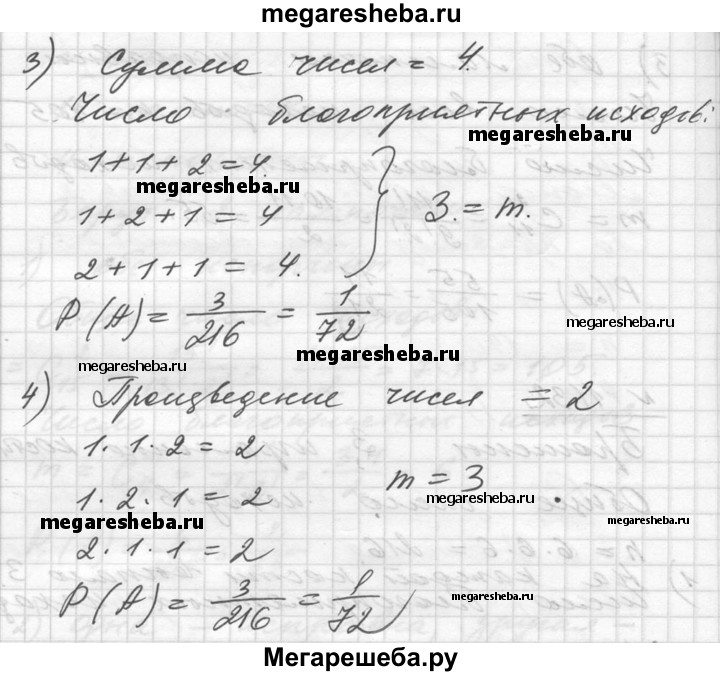 megaresheba.ru
3) Сумма чисел = 4.
Число благоприятных исходов:
megaresheba.ru
1+1+2=4.
megaresheba.ru
1+2+1=4
3.=m.
2+1+1=4.
P(A)= 3/216 = 1/72
megaresheba.ru
megaresheba.ru
megaresheba.ru
4) Произведение чисел = 2
1·1·2=2
m=3
1·2·1=2
megaresheba.ru
megaresheba.ru
megaresheba.ru
2·1·1=2
P(A)= 3/216 = 1/72
megaresheba.ru
Мегарешеба.ру